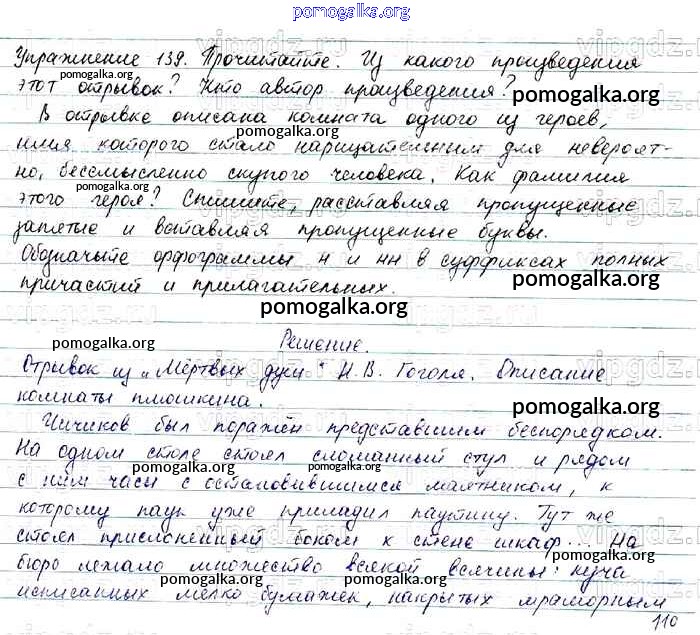 pomogalka.org
Упражнение 139. Прочитайте. Из какого произведения
этот отрывок? Кто автор произведения?
В отрывке описана комната одного из героев,
имя которого стало нарицательным для невероят-
но, бессмысленно скупого человека. Как фамилия
этого героя? Спишите, расставляя пропущенные
запятые и вставляя пропущенные буквы.
Обозначьте орфограммы н и нн в суффиксах полных
причастий и прилагательных.
Решение.
Отрывок из „Мёртвых душ" Н.В. Гоголя. Описание
комнаты плюшкина.
Чичиков был поражён представшим беспорядком.
На одном столе стоял сломанный стул и рядом
с ним часы с остановившимся маятником, к
которому паук уже приладил паутину. Тут же
стоял прислоненный боком к стене шкаф... На
бюро лежало множество всякой всячины: куча
исписанных мелко бумажек, накрытых мраморным
110